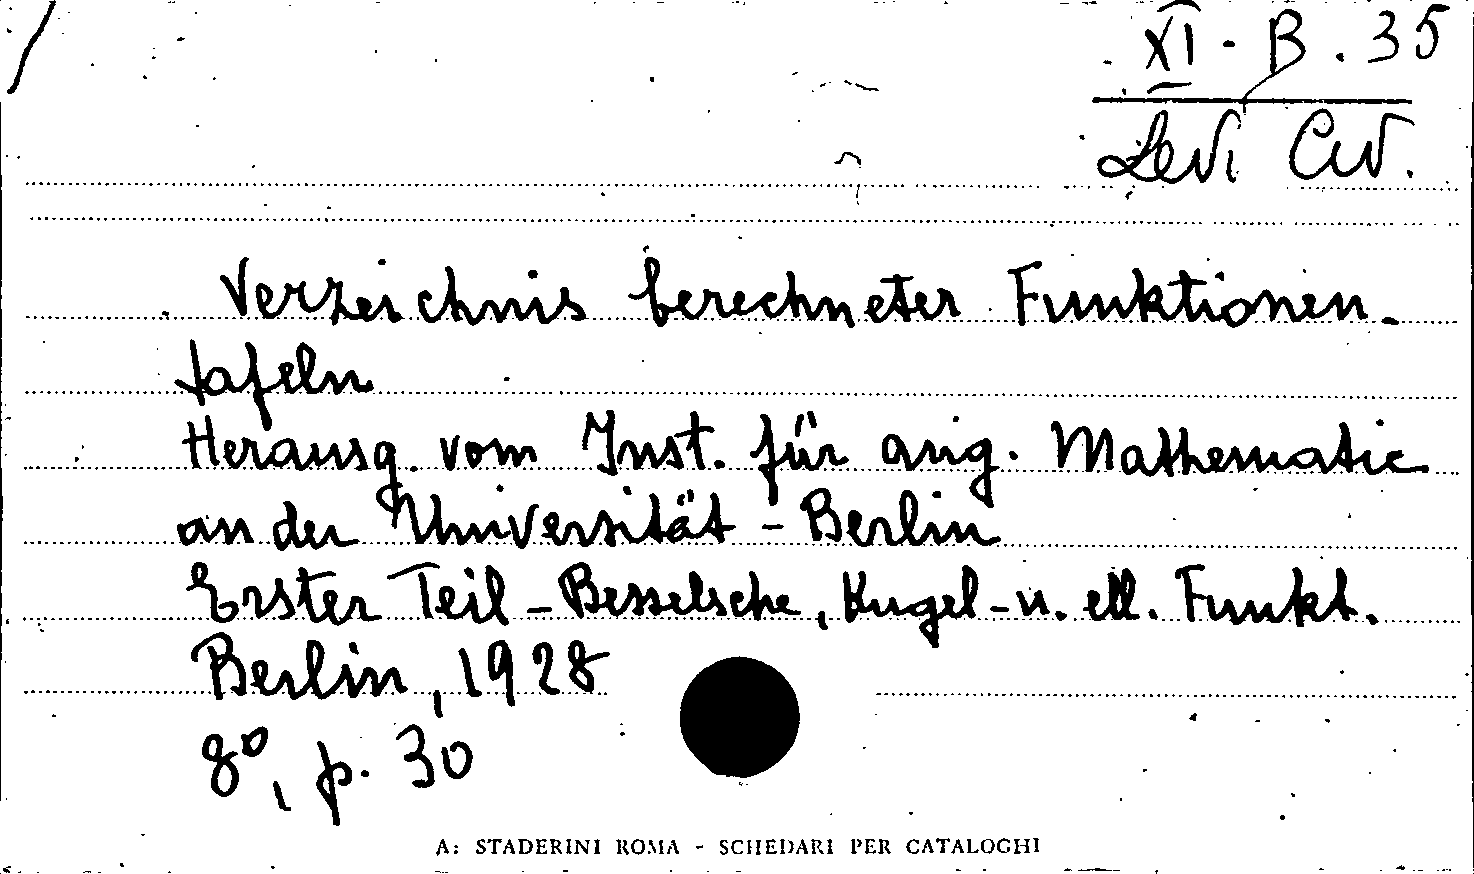 XI - B. 35
Levi Civ.
Verzeichnis berechneter Funktionen-
tafeln
Herausg. vom Inst. für ang. Mathematic
an der Universität - Berlin
Erster Teil - Besselsche, Kugel - u. ell. Funkt.
Berlin, 1928
8°, p. 30
A: STADERINI ROMA - SCHEDARI PER CATALOGHI